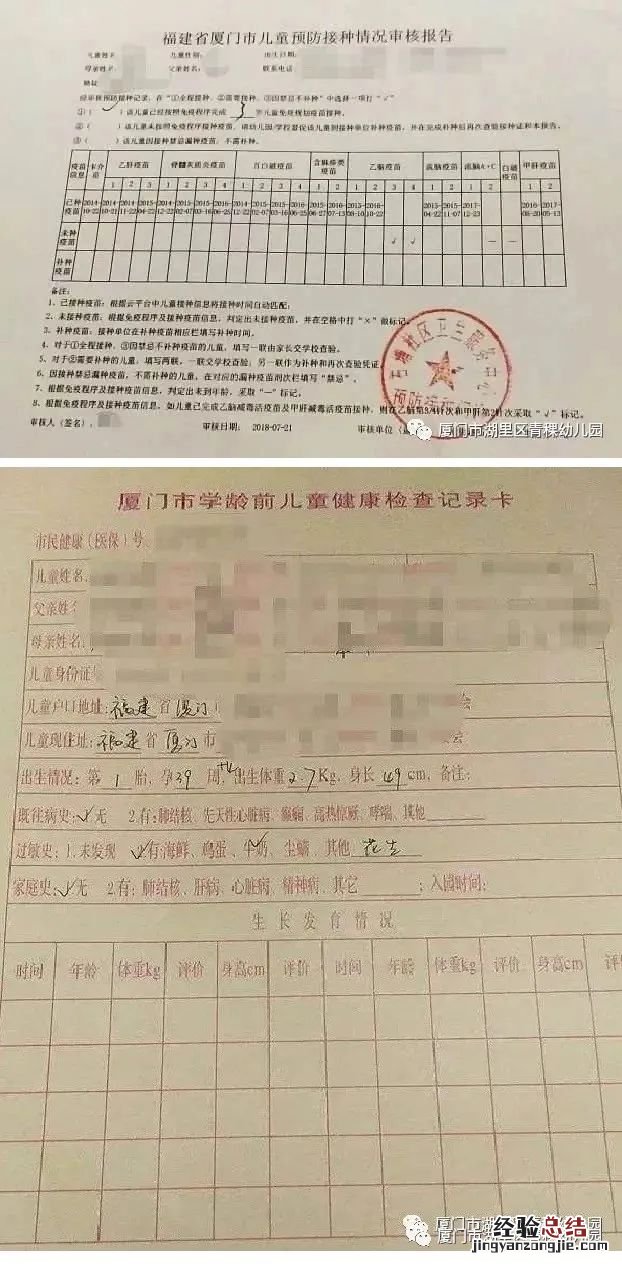 福建省厦门市儿童预防接种情况审核报告
儿童姓名 儿童性别: 出生日期:
母亲姓名 父亲姓名: 联系电话
地址
经审核预防接种记录，在“①全程接种，②需要接种，③因禁忌不补种”中选择一项打“√”
①（√）该儿童已经按照免疫程序完成 3 岁儿童免疫规划疫苗接种。
②（ ）该儿童未按照免疫程序接种疫苗，请幼儿园/学校督促该儿童到接种单位补种疫苗，并在完成补种后再次查验接种证和本报告。
③（ ）该儿童因接种禁忌漏种疫苗，不需补种。
疫苗信息 卡介苗 乙肝疫苗 脊髓灰质炎疫苗 百白破疫苗 含麻疹类疫苗 乙脑疫苗 流脑疫苗 流脑A+C 白破疫苗 甲肝疫苗
1 2 3 1 2 3 4 1 2 3 4 1 2 1 2 3 4 1 2 1 2 1 2
已种疫苗 2014-10-22 2014-10-21 2014-11-22 2015-04-22 2014-12-22 2015-02-07 2015-03-16 2015-06-25 2014-12-22 2015-02-07 2015-03-16 2016-06-25 2015-06-27 2016-07-13 2015-08-10 2016-10-22 2015-04-22 2015-11-07 2017-12-23 2016-08-20 2017-05-13
未种疫苗 √ √ — —
补种疫苗
备注:
1. 已接种疫苗: 根据云平台中儿童接种信息将接种时间自动匹配;
2. 未接种疫苗: 根据免疫程序及接种疫苗信息，判定出未接种疫苗，并在空格中打“×”做标记。
3. 补种疫苗: 接种单位在补种疫苗相应栏填写补种时间。
4. 对于①全程接种，③因禁忌不补种疫苗的儿童，填写一联由家长交学校查验。
5. 对于②需要补种的儿童，填写两联，一联交学校查验; 另一联作为补种和再次查验凭证
6. 因接种禁忌漏种疫苗，不需补种的儿童，在对应的漏种疫苗剂次栏填写“禁忌”。
7. 根据免疫程序及接种疫苗信息，判定出未到年龄，采取“—”标记。
8. 根据免疫程序及接种疫苗信息，如儿童已完成乙脑减毒活疫苗及甲肝减毒活疫苗接种，则在乙脑第3/4针次和甲肝第2针次采取“√”标记。
审核人（签名）: 审核日期: 2018-07-21 审核单位
社区卫生服务中心
预防接种
厦门市湖里区青稞幼儿园
厦门市学龄前儿童健康检查记录卡
市民健康（医保）号
儿童姓名
父亲姓名
母亲姓名:
儿童身份证
儿童户口地址: 福建 省 厦门
儿童现住址: 福建 省 厦门 市
出生情况: 第 1 胎，孕 39 周+4，出生体重 2.7 Kg，身长 49 cm，备注:
既往病史: √ 无 2.有: 肺结核、先天性心脏病、癫痫、高热惊厥、哮喘、其他
过敏史: 1.未发现 √ 有: 海鲜、鸡蛋、牛奶、尘螨、其他 花生
家庭史: √ 无 2.有: 肺结核、肝病、心脏病、精神病、其它 ; 入园时间:
生长发育情况
时间 年龄 体重kg 评价 身高cm 评价 时间 年龄 体重kg 评价 身高cm 评
厦门市湖
厦门市湖
经验总结
jingyanzongjie.com